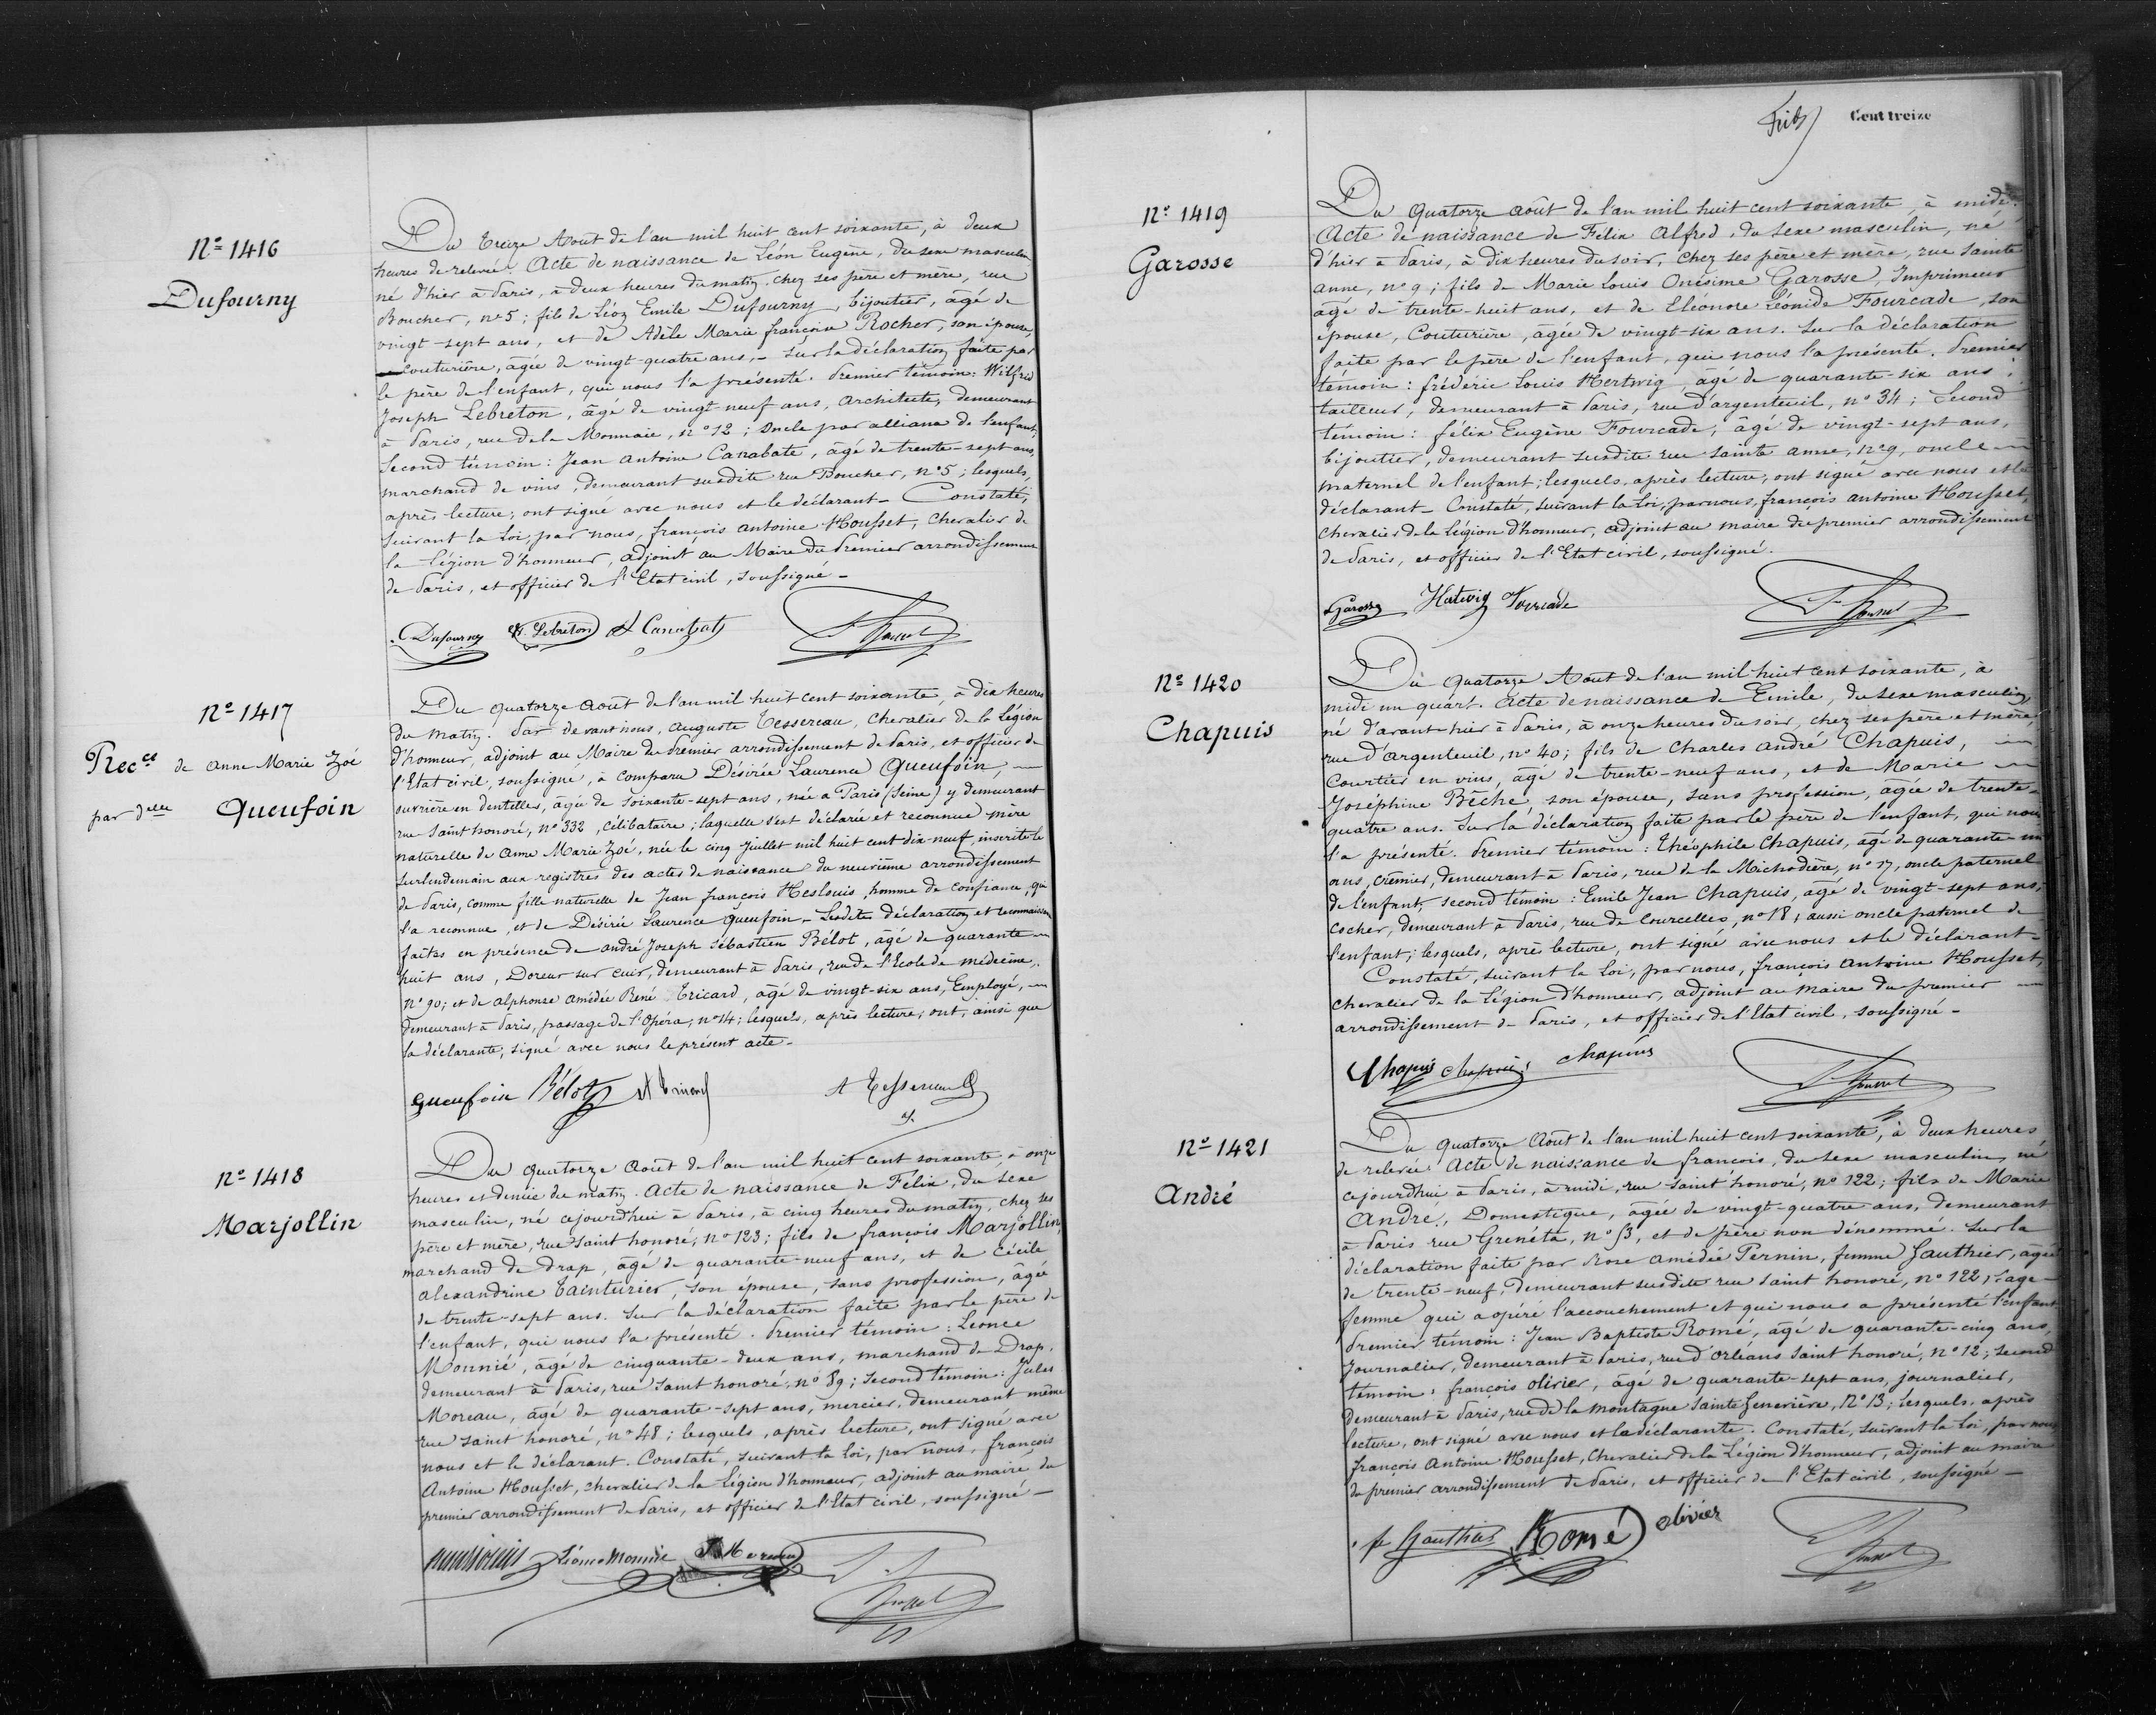 Nº 1416
Dufourny
Du treize Août de l'an mil huit cent soixante, à deux
heures de relevée. Acte de naissance de Léon Eugène, du sexe masculin
né d'hier à Paris, à deux heures du matin, chez ses père et mère, rue
Boucher, nº 5; fils de Léon Emile Dufourny, bijoutier, âgé de
vingt-sept ans, et de Adèle Marie françoise Rocher, son épouse,
couturière, âgée de vingt-quatre ans, - Sur la déclaration faite par
le père de l'enfant, qui nous l'a présenté. Premier témoin: Wilfrid
Joseph Lebreton, âgé de vingt-neuf ans, Architecte, demeurant
à Paris, rue de la Monnaie, nº 12; Oncle par alliance de l'enfant;
Second témoin: Jean Antoine Canabate, âgé de trente-sept ans,
marchand de vins, demeurant susdite rue Boucher, nº 5; lesquels,
après lecture, ont signé avec nous et le déclarant - Constaté,
suivant la Loi, par nous, françois antoine Housset, Chevalier de
la Légion d'honneur, adjoint au Maire du Premier arrondissement
de Paris, et officier de l'Etat civil, soussigné -
Dufourny Lebreton
Nº 1417
Recce de Anne Marie Zoé
par delle Queufoin
Du quatorze août de l'an mil huit cent soixante, à dix heures
du matin. Par devant nous, Auguste Tessereau, Chevalier de la Légion
d'honneur, adjoint au Maire du Premier arrondissement de Paris, et officier de
l'Etat civil, soussigné, à comparu Désirée Laurence Queufoin,
ouvrière en dentelles, âgée de soixante-sept ans, née à Paris (Seine) y demeurant
rue Saint honoré, nº 332, célibataire; laquelle s'est déclarée et reconnue mère
naturelle de Anne Marie Zoé, née le cinq Juillet mil huit cent dix-neuf, inscrite le
surlendemain aux registres des actes de naissance du neuvième arrondissement
de Paris, comme fille naturelle de Jean françois Heslouis, homme de confiance, qui
l'a reconnue, et de Désirée Laurence Queufoin - Lesdites déclaration et reconnaissance
faites en présence de andré Joseph Sébastien Bélot, âgé de quarante
huit ans, Doreur sur cuir, demeurant à Paris, rue de l'Ecole de médecine,
nº 90; et de alphonse amédée René Tricard, âgé de vingt-six ans, Employé,
demeurant à Paris, passage de l'Opéra, nº 14; lesquels, après lecture, ont, ainsi que
la déclarante, signé avec nous le présent acte -
Queufoin Bélot A Tessereau
Nº 1418
Marjollin
Du quatorze août de l'an mil huit cent soixante, à onze
heures et demie du matin. Acte de naissance de Félix, du sexe
masculin, né cejourd'hui à Paris, à cinq heures du matin, chez ses
père et mère, rue Saint honoré, nº 123; fils de françois Marjollin,
marchand de drap, âgé de quarante-neuf ans, et de Cécile
alexandrine Tainturier, son épouse, sans profession, âgée
de trente-sept ans. Sur la déclaration faite par le père de
l'enfant, qui nous l'a présenté. Premier témoin: Léonce
Monnié, âgé de cinquante-deux ans, marchand de Drap,
demeurant à Paris, rue Saint honoré, nº 89; Second témoin: Jules
Moreau, âgé de quarante-sept ans, mercier, demeurant même
rue Saint honoré, nº 48; lesquels, après lecture, ont signé avec
nous et le déclarant. Constaté, suivant la Loi, par nous, françois
Antoine Housset, chevalier de la légion d'honneur, adjoint au maire du
premier arrondissement de Paris, et officier de l'Etat civil, soussigné -
Léonce Monnié
Cent treize
Nº 1419
Garosse
Du Quatorze août de l'an mil huit cent soixante, à midi.
Acte de naissance de Félix Alfred, du sexe masculin, né
d'hier à Paris, à dix heures du soir, chez ses père et mère, rue Sainte
anne, nº 9; fils de Marie Louis Onésime Garosse, Imprimeur
âgé de trente-huit ans, et de Eléonore Léonide Fourcade, son
épouse, Couturière, âgée de vingt-six ans. Sur la déclaration
faite par le père de l'enfant, qui nous l'a présenté. Premier
témoin: frédéric Louis Hertwig, âgé de quarante-six ans,
tailleur, demeurant à Paris, rue d'argenteuil, nº 34; Second
témoin: félix Eugène Fourcade, âgé de vingt-sept ans,
bijoutier, demeurant susdite rue Sainte anne, nº 9, oncle
maternel de l'enfant; lesquels, après lecture, ont signé avec nous et le
déclarant - Constaté, suivant la Loi, par nous, françois antoine Housset,
Chevalier de la Légion d'honneur, adjoint au maire du premier arrondissement
de Paris, et officier de l'Etat civil, soussigné.
Garosse Hertwig Fourcade
Nº 1420
Chapuis
Du quatorze Août de l'an mil huit cent soixante, à
midi un quart. Acte de naissance de Emile, du sexe masculin,
né d'avant-hier à Paris, à onze heures du soir, chez ses père et mère,
rue d'argenteuil, nº 40; fils de Charles andré Chapuis,
Courtier en vins, âgé de trente-neuf ans, et de Marie
Joséphine Bêche, son épouse, sans profession, âgée de trente-
quatre ans. Sur la déclaration faite par le père de l'enfant, qui nous
l'a présenté. Premier témoin: Théophile Chapuis, âgé de quarante-un
ans, crémier, demeurant à Paris, rue de la Michodière, nº 17, oncle paternel
de l'enfant; second témoin: Emile Jean Chapuis, âgé de vingt-sept ans,
cocher, demeurant à Paris, rue de Courcelles, nº 18; aussi oncle paternel de
l'enfant; lesquels, après lecture, ont signé avec nous et le déclarant -
Constaté, suivant la Loi, par nous, françois Antoine Housset,
chevalier de la Légion d'honneur, adjoint au Maire du premier
arrondissement de Paris, et officier de l'Etat civil, soussigné -
Chapuis chapuis chapuis
Nº 1421
André
Du quatorze Août de l'an mil huit cent soixante, à deux heures
de relevée. Acte de naissance de françois, du sexe masculin, né
cejourd'hui à Paris, à midi, rue Saint honoré, nº 122; fils de Marie
André, Domestique, âgée de vingt-quatre ans, demeurant
à Paris rue Grenéta, nº 53, et de père non dénommé. Sur la
déclaration faite par Rose amédée Pernin, femme Gauthier, âgée
de trente-neuf, demeurant susdite rue Saint honoré, nº 122, Sage-
femme qui a opéré l'accouchement et qui nous a présenté l'enfant
Premier témoin: Jean Baptiste Romé, âgé de quarante-cinq ans,
Journalier, demeurant à Paris, rue d'Orléans Saint honoré, nº 12; second
témoin: françois Olivier, âgé de quarante-sept ans, journalier,
Demeurant à Paris, rue de la Montagne Sainte Geneviève, nº 13; lesquels, après
lecture, ont signé avec nous et la déclarante. Constaté, suivant la Loi, par nous
françois Antoine Housset, Chevalier de la Légion d'honneur, adjoint au maire
du premier arrondissement de Paris, et officier de l'Etat civil, soussigné -
fe Gauthier Romé olivier